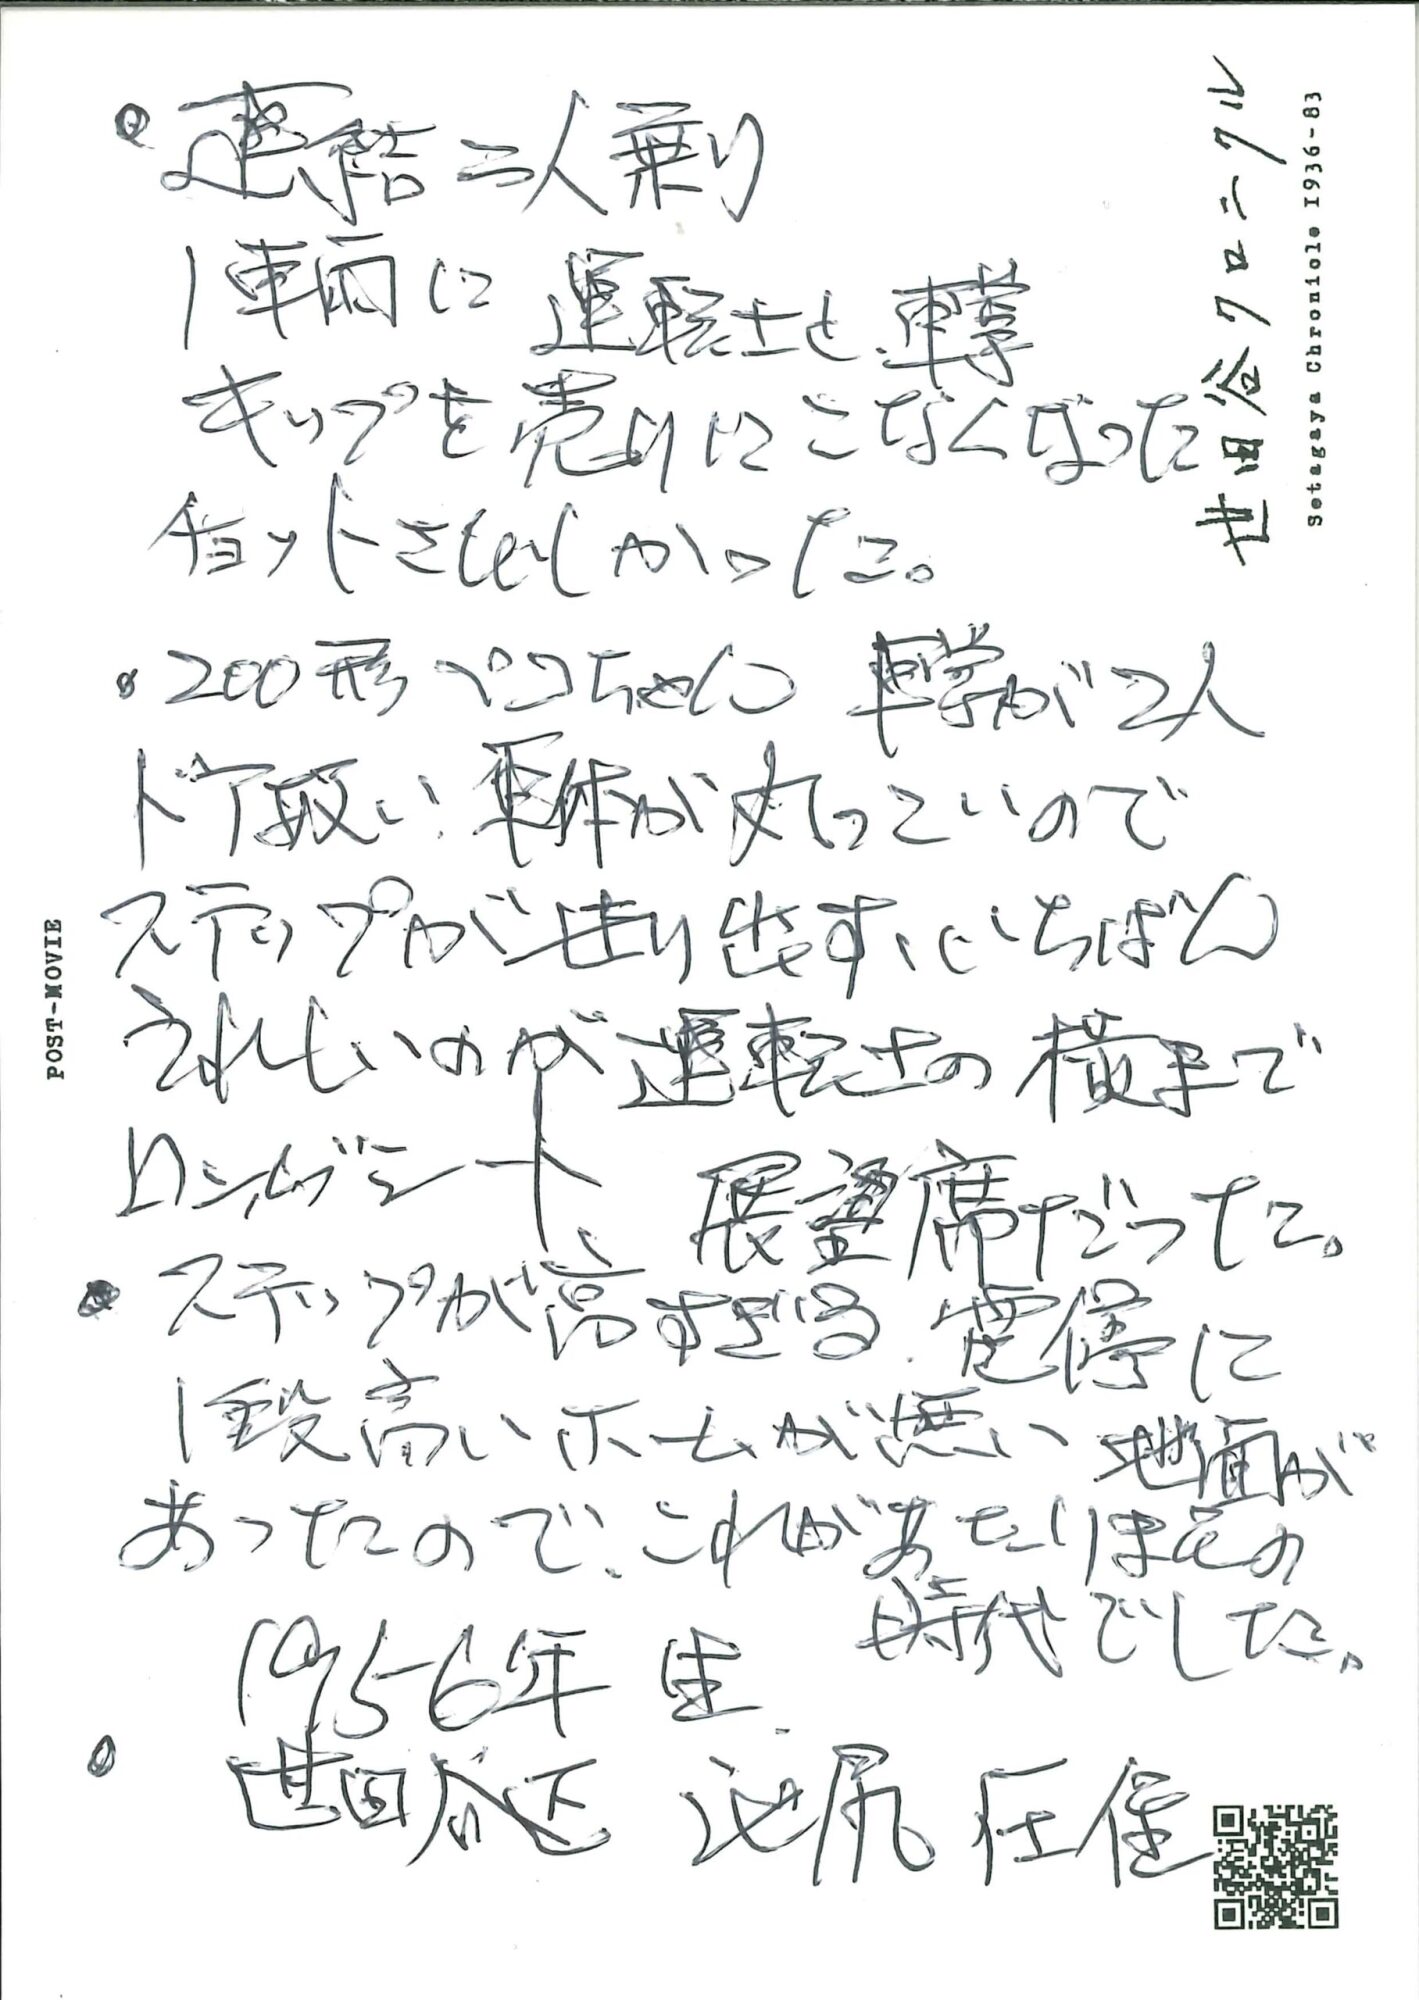 世田谷クロニクル
Setagaya Chronicle 1936-83
POST-MOVIE
連結二人乗り
1車両に運転士と車掌
キップを売りにこなくなった
チョットさむしかった。
200形ペコちゃん 車掌が2人
ドア扱い、車体が丸っこいので
ステップが走り出す、いちばん
うれしいのが運転士の横まで
ロングシート、展望席だった。
ステップが高すぎる、電停に
1段高いホームが悪い地面が
あったので、これがあたりまえの
時代でした。
1956年 生
世田谷区 池尻 在住